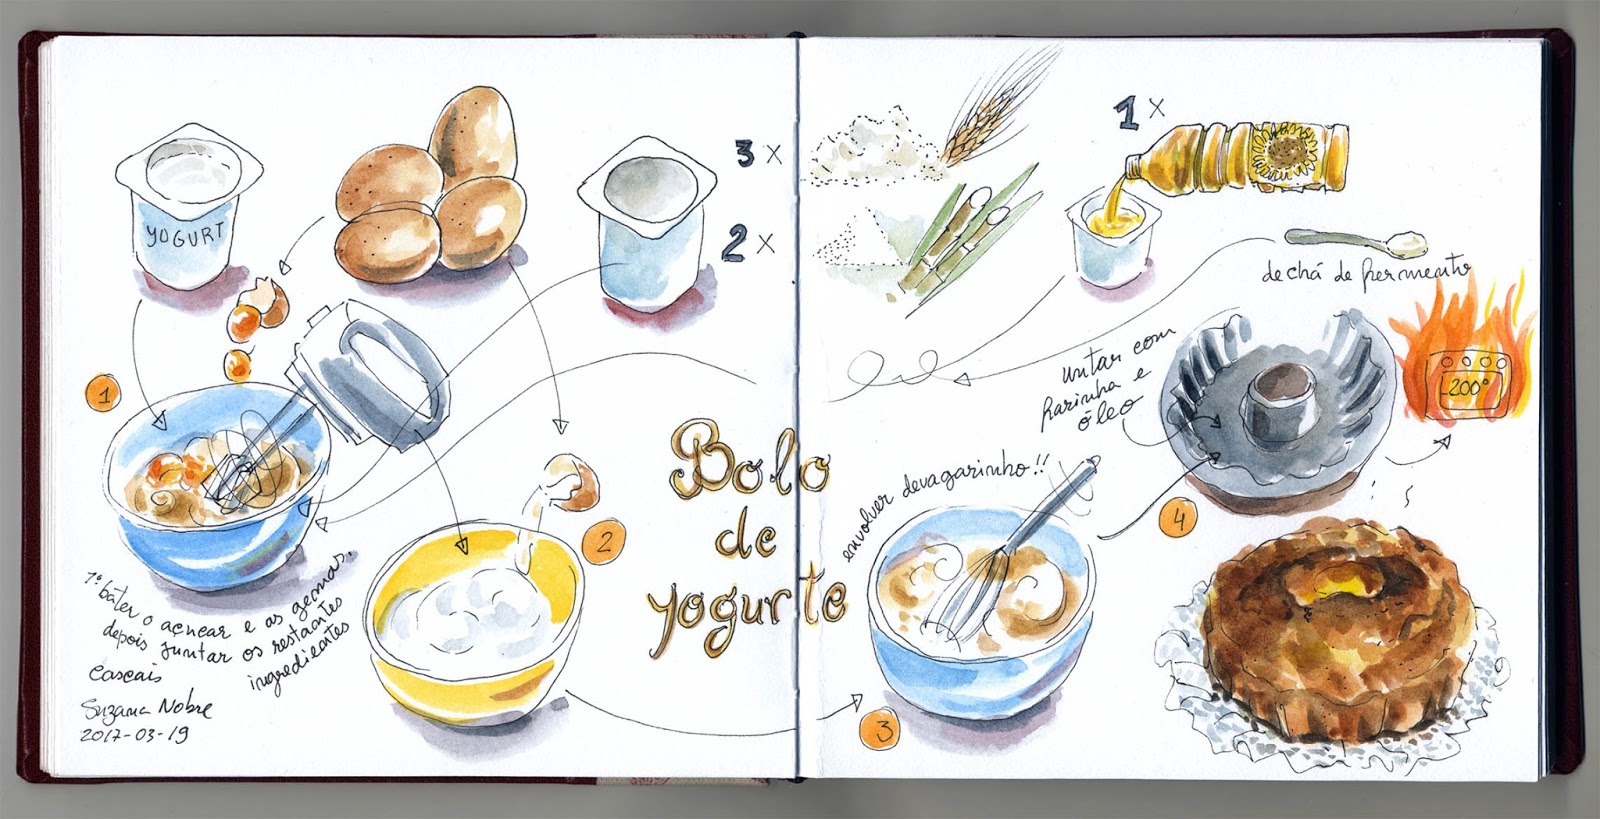 YOGURT
3 x
2 x
1 x
de chá de fermento
1
1º bater o açucar e as gemas.
depois juntar os restantes
ingredientes
Cascais
Suzana Nobre
2017-03-19
2
Bolo
de
yogurte
envolver devagarinho!!
3
untar com
farinha e
óleo
4
200°